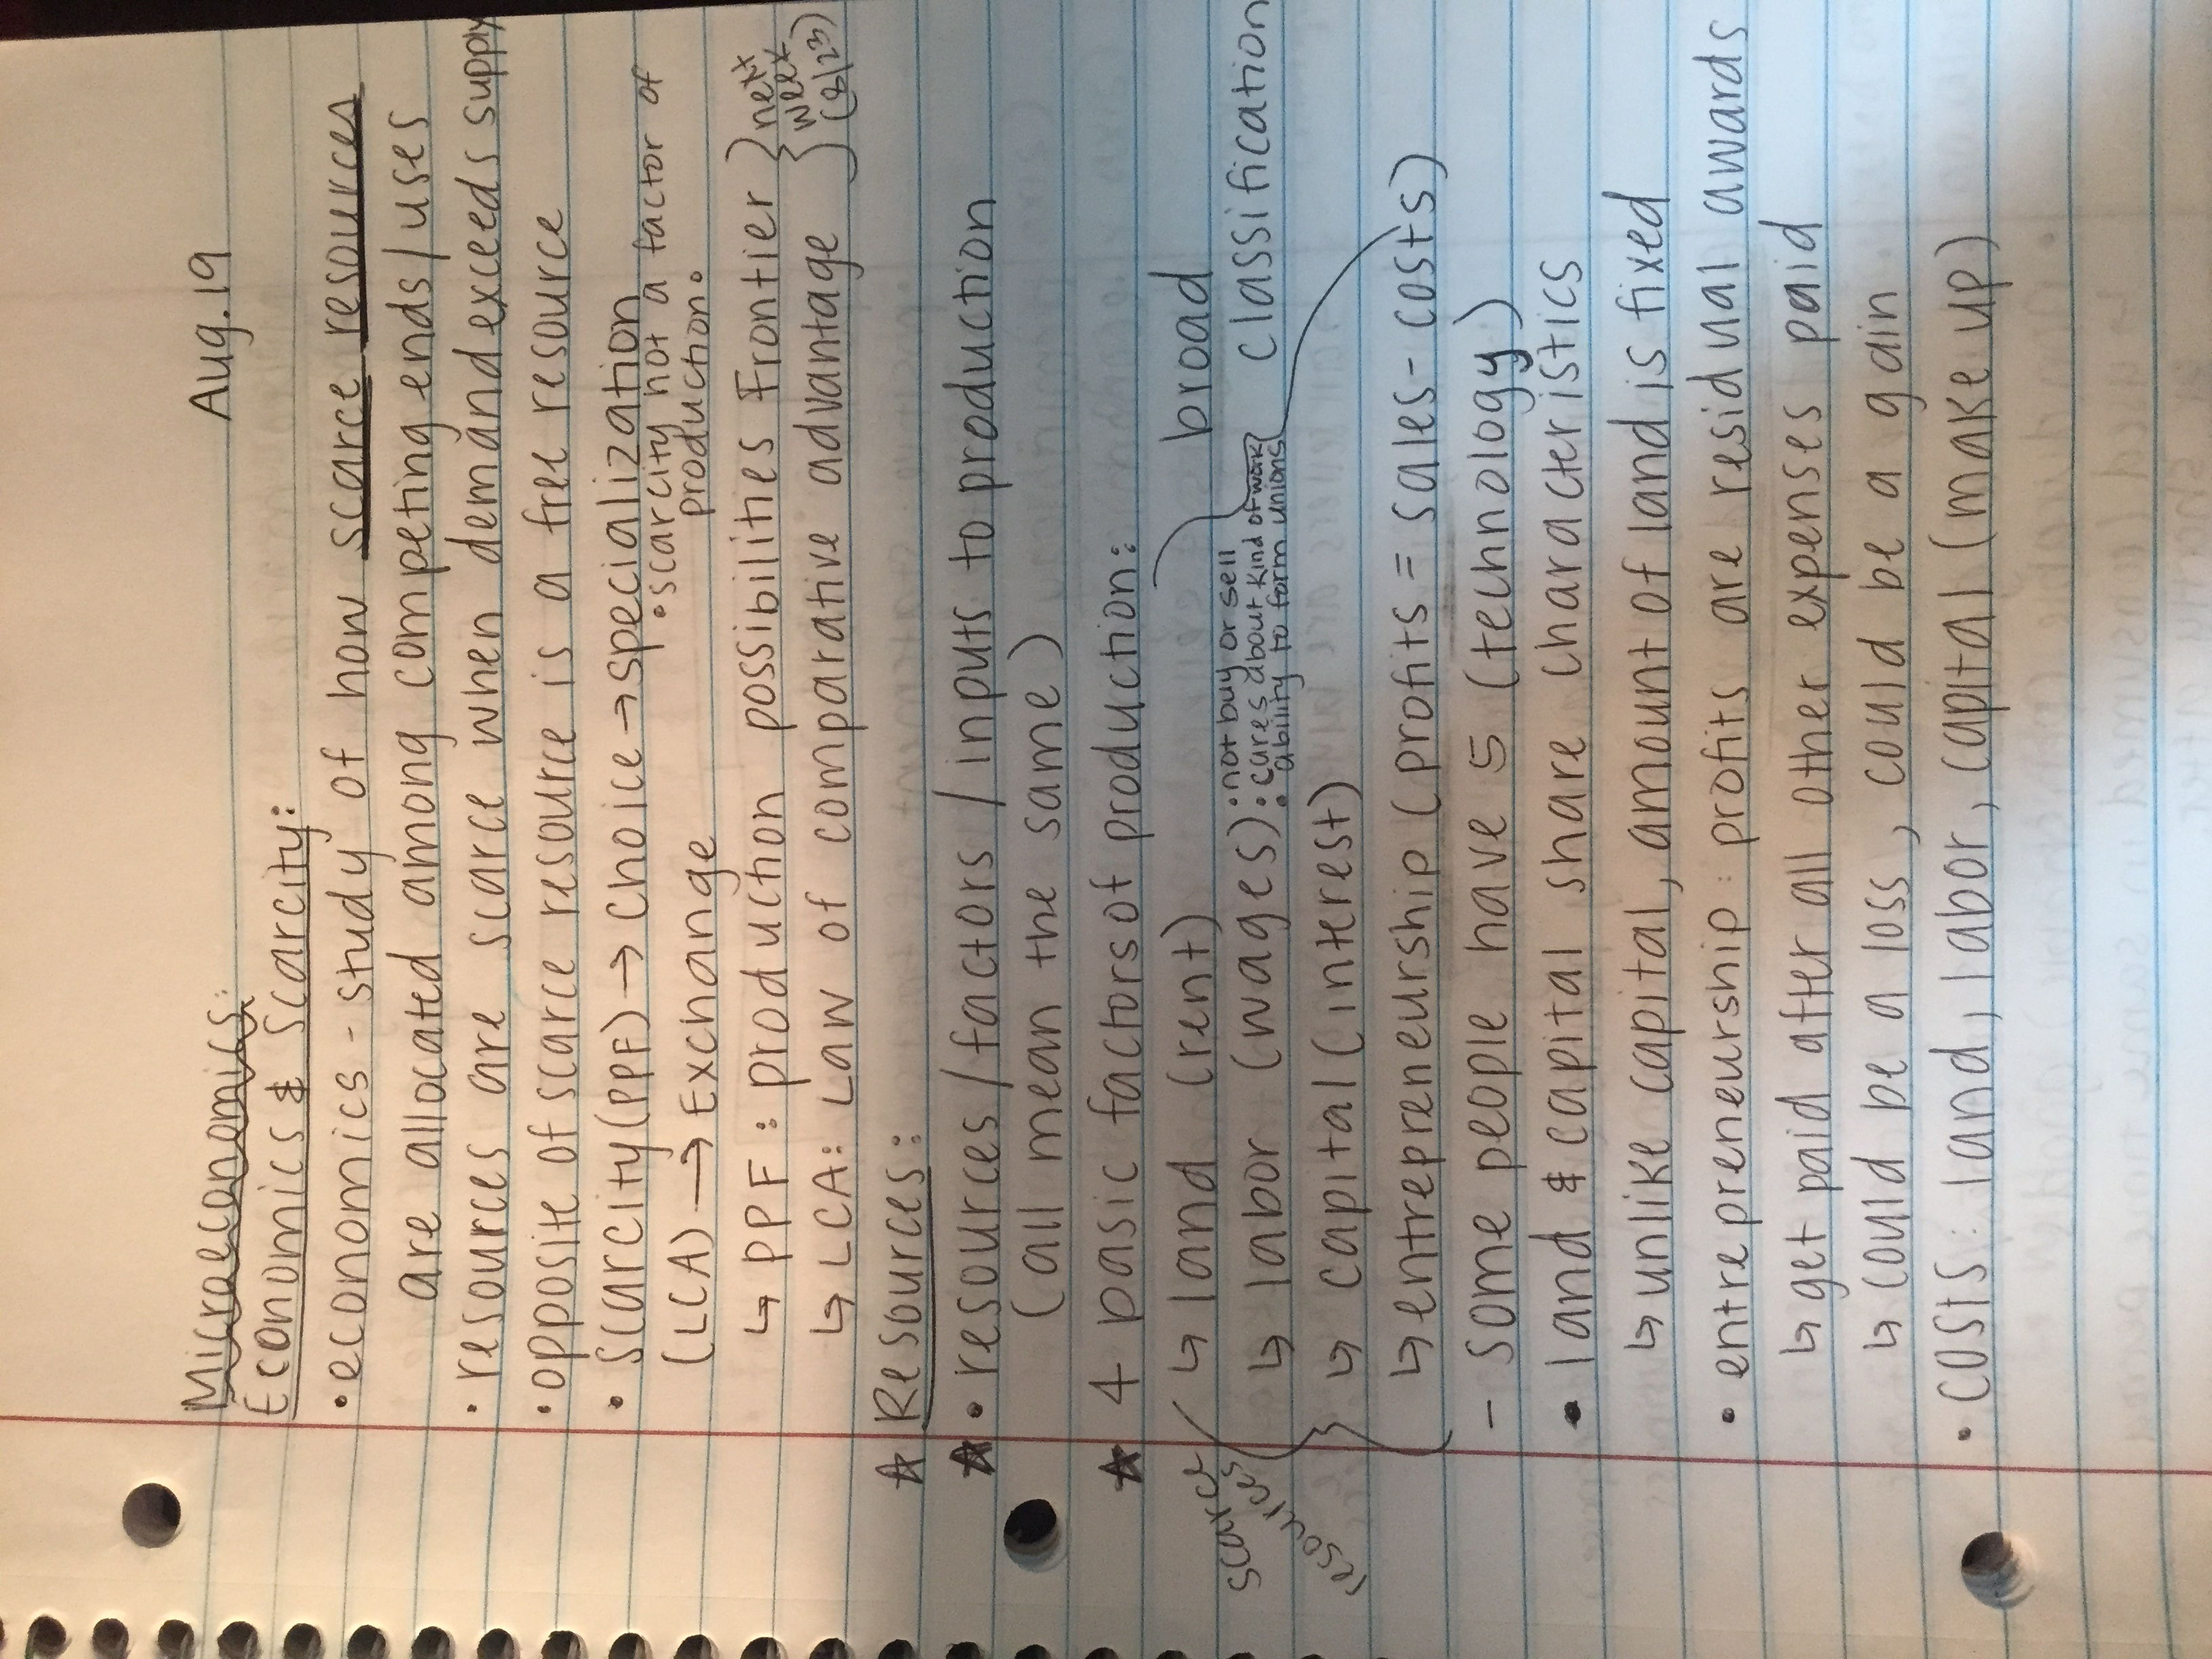 Aug. 19
Microeconomics:
Economics & Scarcity:
• economics - study of how scarce resources
are allocated among competing ends/uses
• resources are scarce when demand exceeds supply
• opposite of scarce resource is a free resource
• Scarcity (PPF) → Choice → specialization
• scarcity not a factor of
production.
(LCA) → Exchange
↳ PPF: production possibilities Frontier } next
week
↳ LCA: Law of comparative advantage } (8/23)
☆ Resources:
☆ • resources/factors/inputs to production
(all mean the same)
☆ 4 basic factors of production:
↳ land (rent)
broad
classification
↳ labor (wages): • not buy or sell
• cares about kind of work
ability to form unions
↳ capital (interest)
scarce
resources
↳ entrepreneurship (profits = sales - costs)
- some people have 5 (technology)
• land & capital share characteristics
↳ unlike capital, amount of land is fixed
• entrepreneurship: profits are residual awards
↳ get paid after all other expenses paid
↳ could be a loss, could be a gain
• COSTS: land, labor, capital (make up)